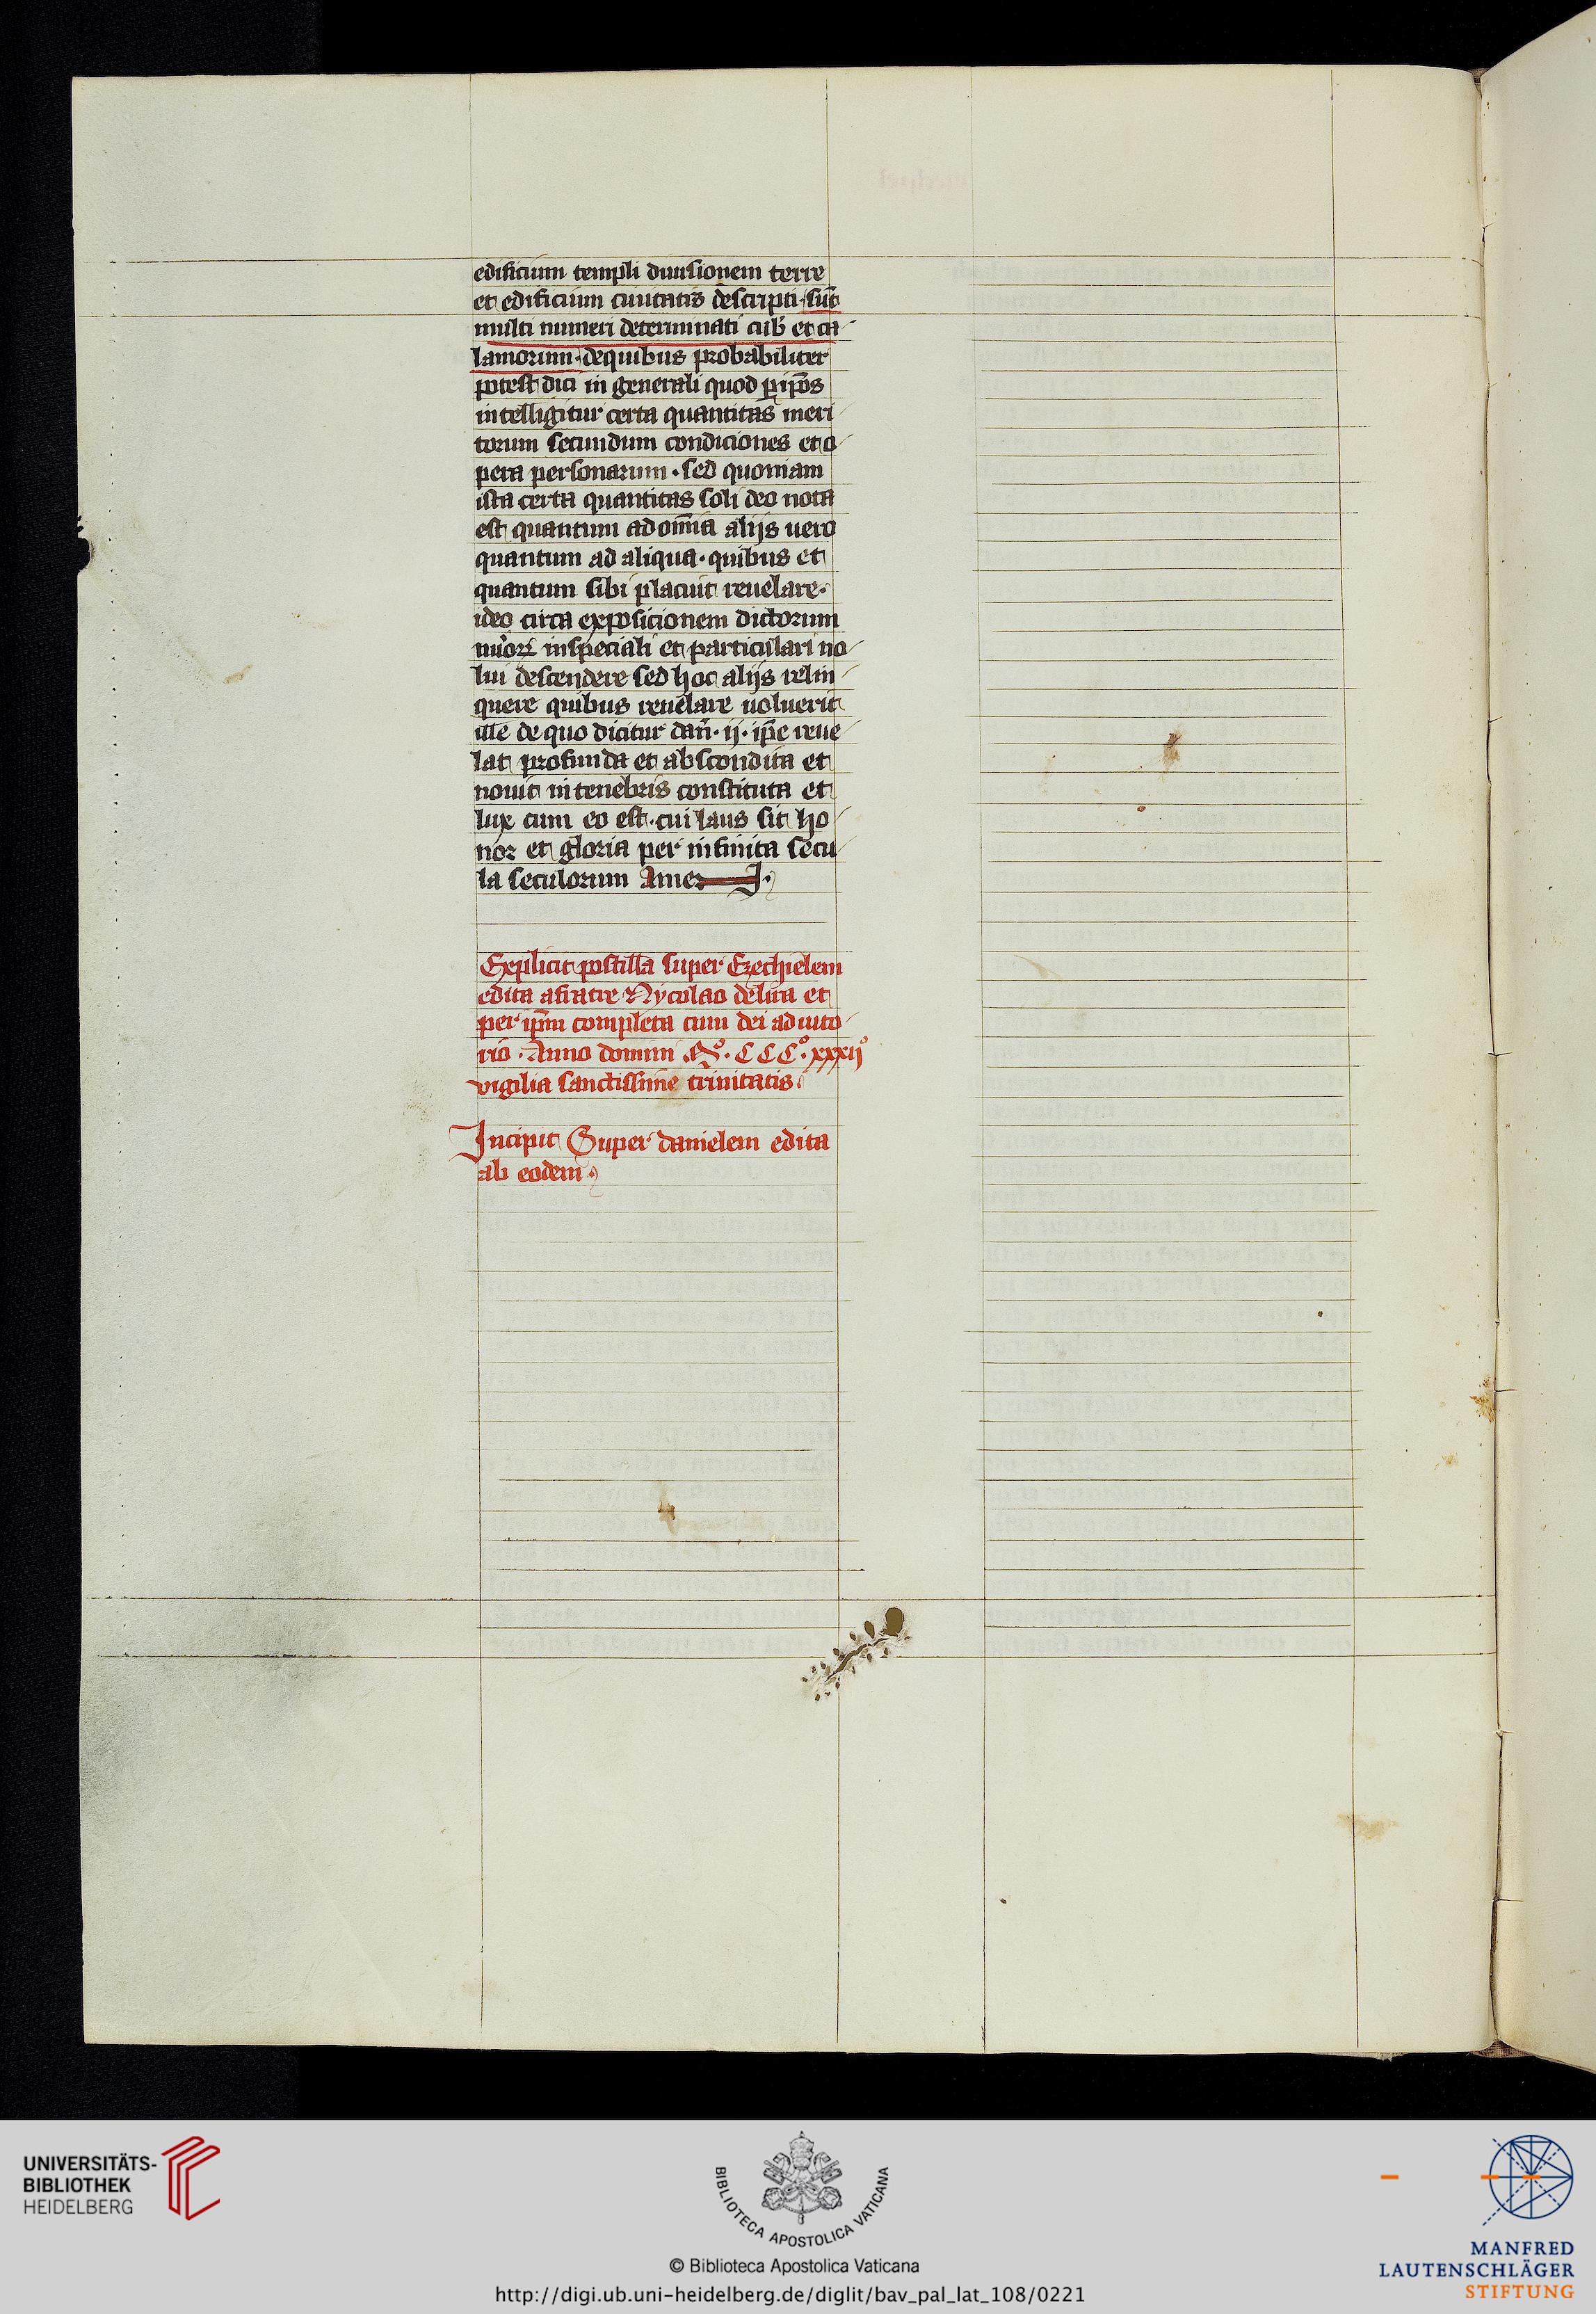 edificium templi diuisionem terre
et edificium ciuitatis descripti · sūt
multi numeri determinati cub' et ca
lamorum · dequibus probabiliter
potest dici in generali quod ꝑ ip̄os
intelligitur certa quantitas meri
torum secundum condiciones et o
pera personarum · sed quoniam
ista certa quantitas soli deo nota
est quantum ad om̄ia alijs uero
quantum ad aliqua · quibus et
quantum sibi placuit reuelare ·
ideo circa exposicionem dictorum
inspeciali et particulari no
lui descendere sed hoc alijs relin
quere quibus reuelare uoluerit
ille de quo dicitur dan̄ · ij · ip̄e reue
lat profunda et abscondita et
nouit in tenebris constituta et
lux cum eo est · cui laus sit ho
nor et gloria per infinita secu
la seculorum Amen ·
Explicit postilla super Ezechielem
edita afratre Nycolao delira et
per ip̄m completa cum dei adiuto
rio · Anno domini Mº · CCCº · xxxijº
vigilia sanctissime trinitatis ·
Incipit Super danielem edita
ab eodem ·
UNIVERSITÄTS-
BIBLIOTHEK
HEIDELBERG
BIBLIOTECA APOSTOLICA VATICANA
© Biblioteca Apostolica Vaticana
http://digi.ub.uni-heidelberg.de/diglit/bav_pal_lat_108/0221
MANFRED
LAUTENSCHLÄGER
STIFTUNG